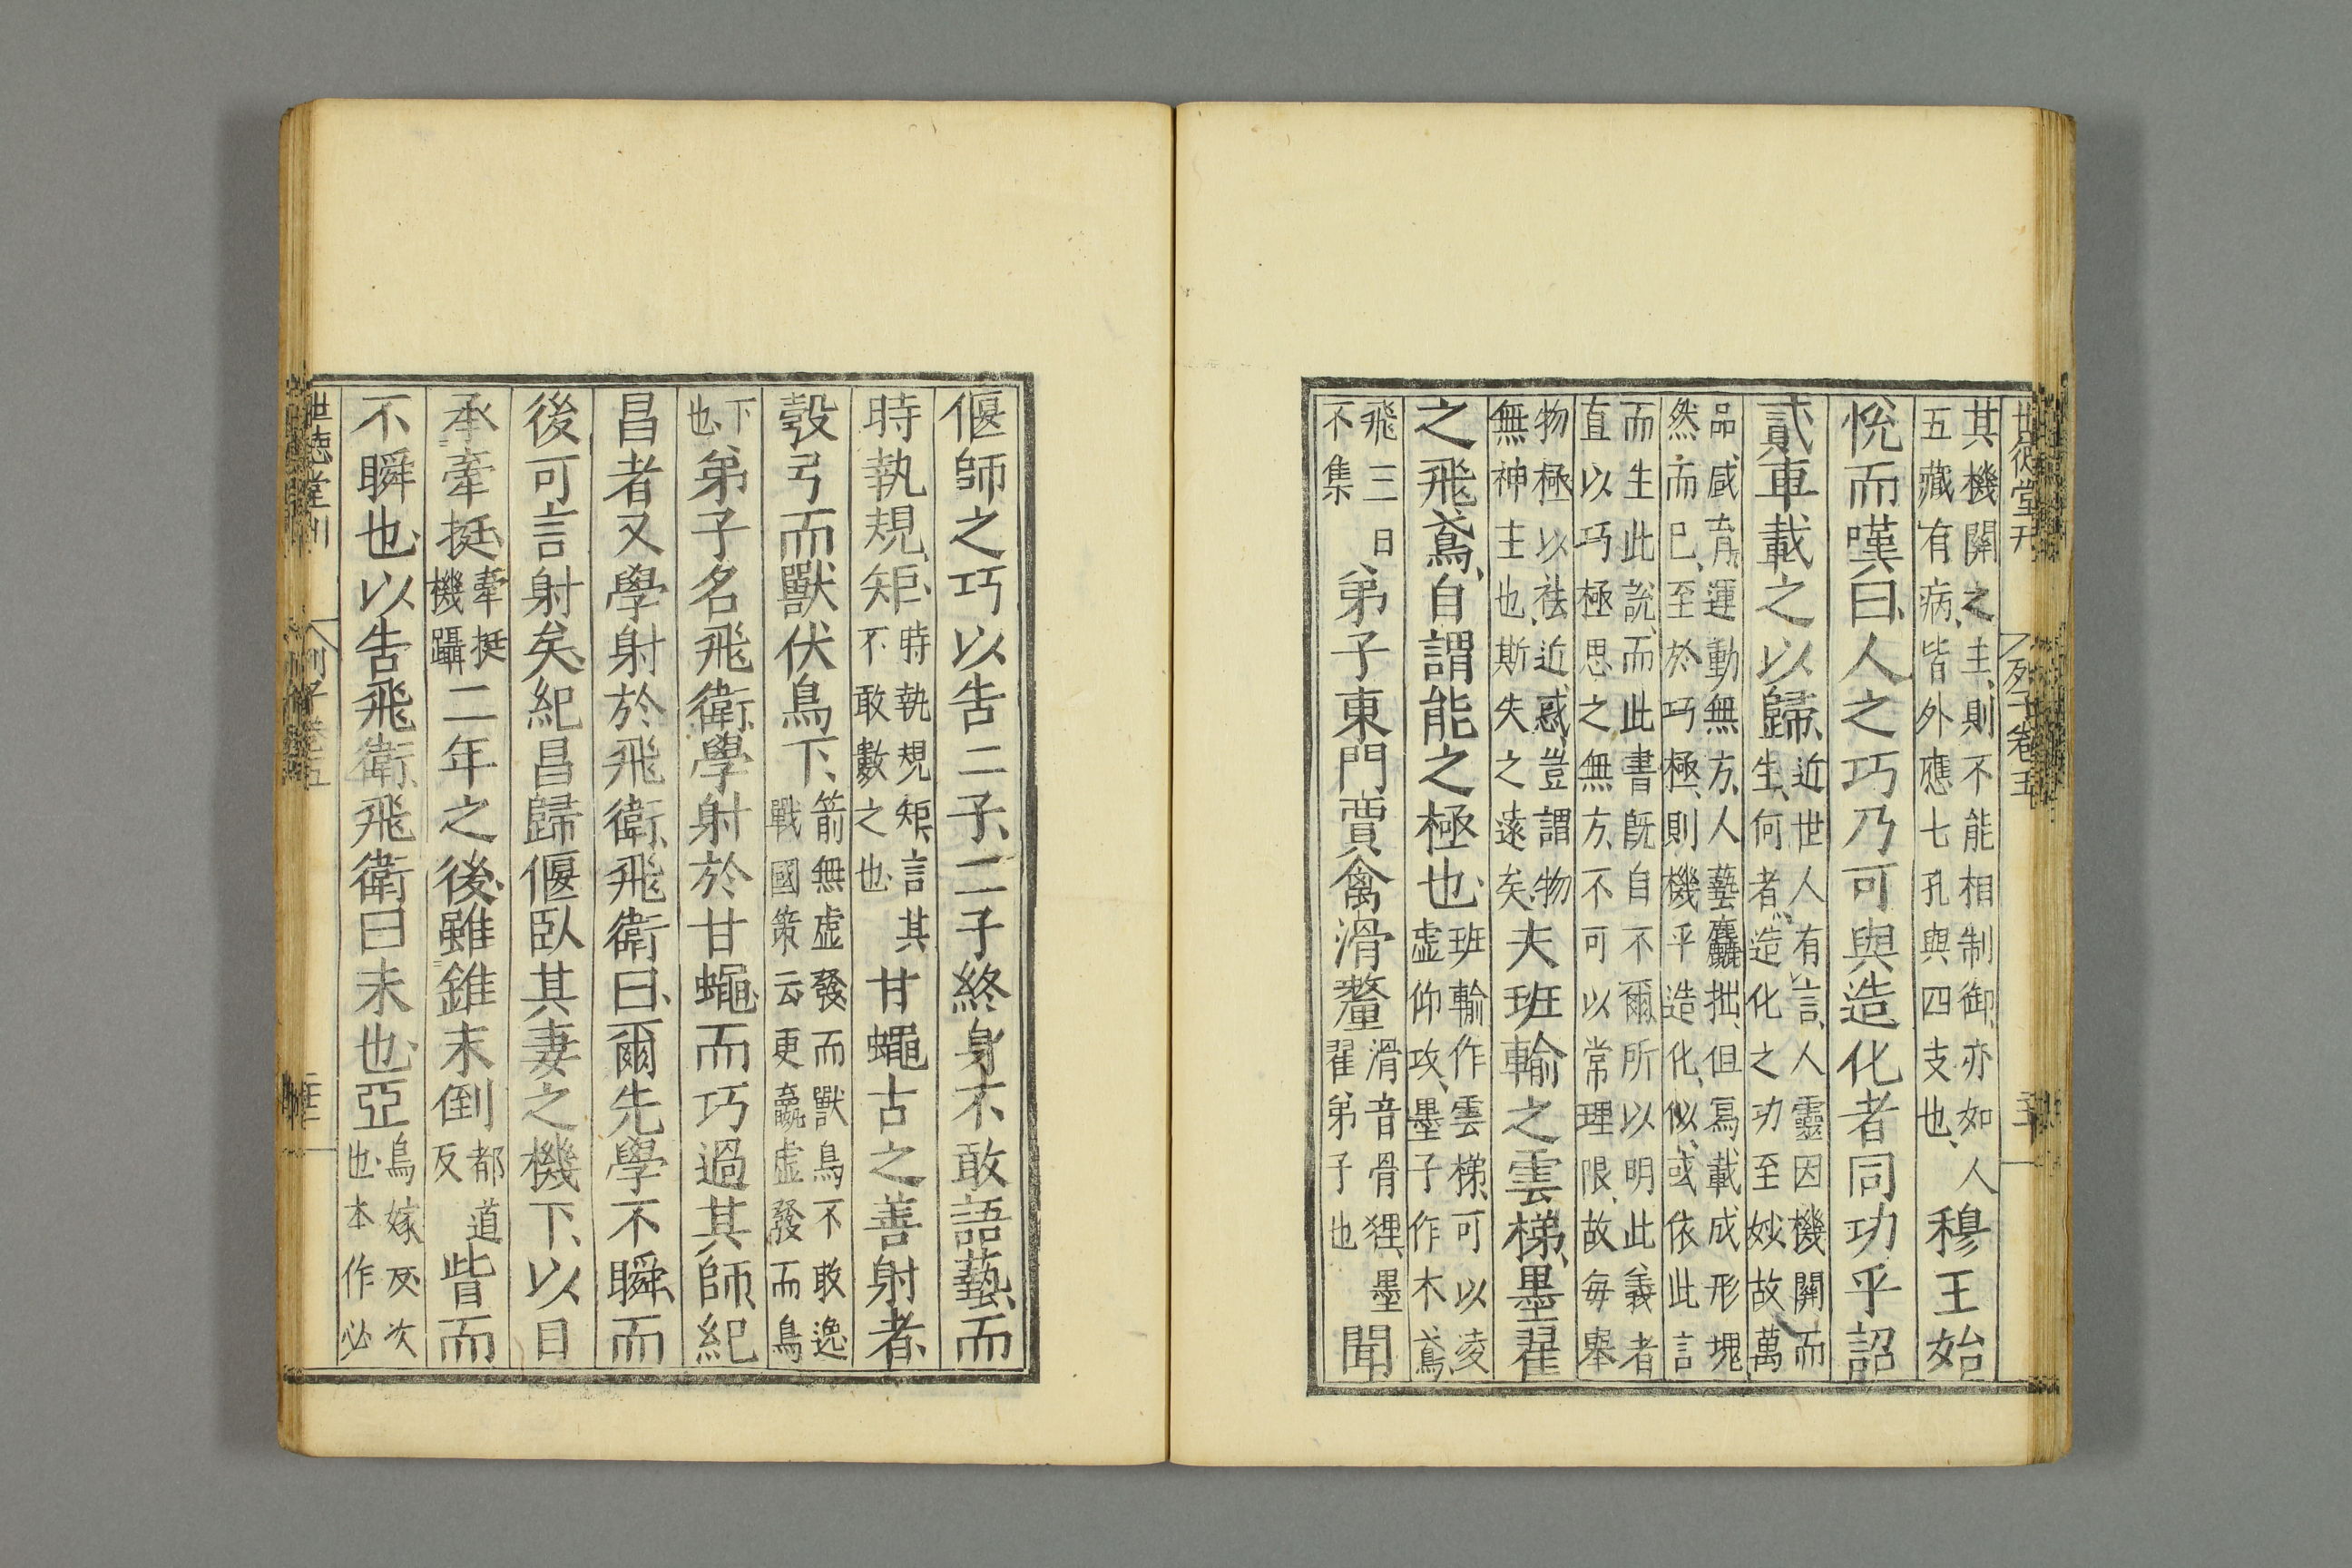 世德堂刊 列子卷五
其機關之主、則不能相制御、亦如人
五藏有病、皆外應七孔與四支也、
穆王始
悅而嘆曰、人之巧乃可與造化者同功乎詔
貳車載之以歸、
近世人有言、人靈因機關而
生、何者、造化之功至妙、故萬
品咸育、運動無方、人藝麤拙、但寫載成形、塊
然而已、至於巧極、則機乎造化、似或依此言
而生此說、而此書旣自不爾、所以明此義者
直以巧極思之無方、不可以常理限、故每舉
物極以袪近惑、豈謂物
無神主也、斯失之遠矣、
夫班輸之雲梯、墨翟
之飛鳶、自謂能之極也、
班輸作雲梯、可以凌
虛仰攻、墨子作木鳶、
飛三日
不集
弟子東門賈禽滑釐
滑音骨狸、墨
翟弟子也
聞
偃師之巧以告二子、二子終身不敢語藝、而
時執規矩、
時執規矩、言其
不敢數之也、
甘蠅古之善射者、
彀弓而獸伏鳥下、
箭無虛發、而獸鳥不敢逸
戰國策云更羸虛發而鳥
下
也、
弟子名飛衛、學射於甘蠅、而巧過其師、紀
昌者又學射於飛衛、飛衛曰、爾先學不瞬、而
後可言射矣、紀昌歸偃臥其妻之機下、以目
承牽挺、
牽挺
機躡
二年之後、雖錐末倒
都道
反
眥而
不瞬也、以告飛衛、飛衛曰未也、亞
烏嫁反、次
也、本作必
世德堂刊 列子卷五